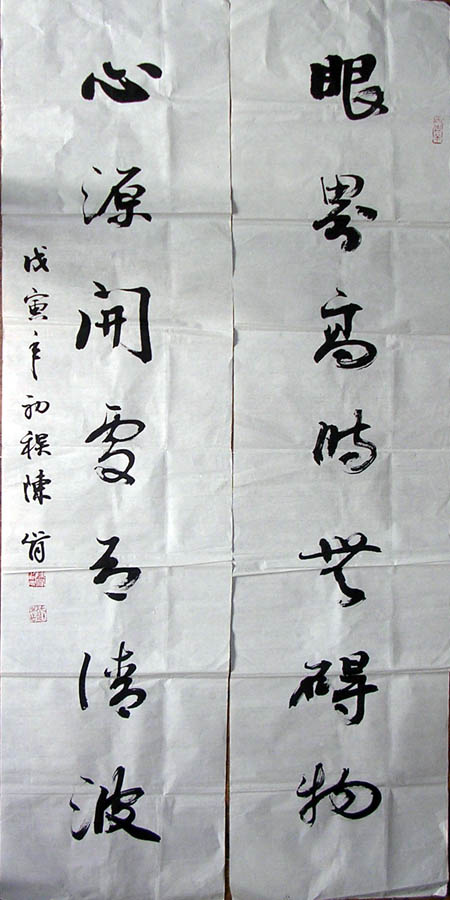 眼界高時無碍物
心源開處有清波
戊寅年初稞陳